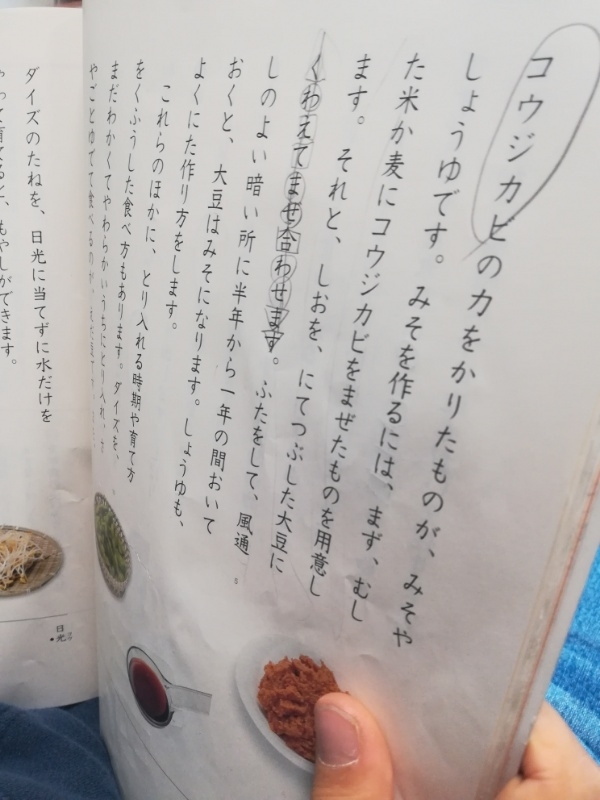 コウジカビの力をかりたものが、みそや
しょうゆです。みそを作るには、まず、むし
た米か麦にコウジカビをまぜたものを用意し
ます。それと、しおを、にてつぶした大豆に
くわえてまぜ合わせます。ふたをして、風通
しのよい暗い所に半年から一年の間おいて
おくと、大豆はみそになります。しょうゆも、
よくにた作り方をします。
これらのほかに、とり入れる時期や育て方
をくふうした食べ方もあります。ダイズを、
まだわかくてやわらかいうちにとり入れ、さ
やごとゆでて食べるのが、
ダイズのたねを、日光に当てずに水だけを
やって育てると、もやしができます。
日光